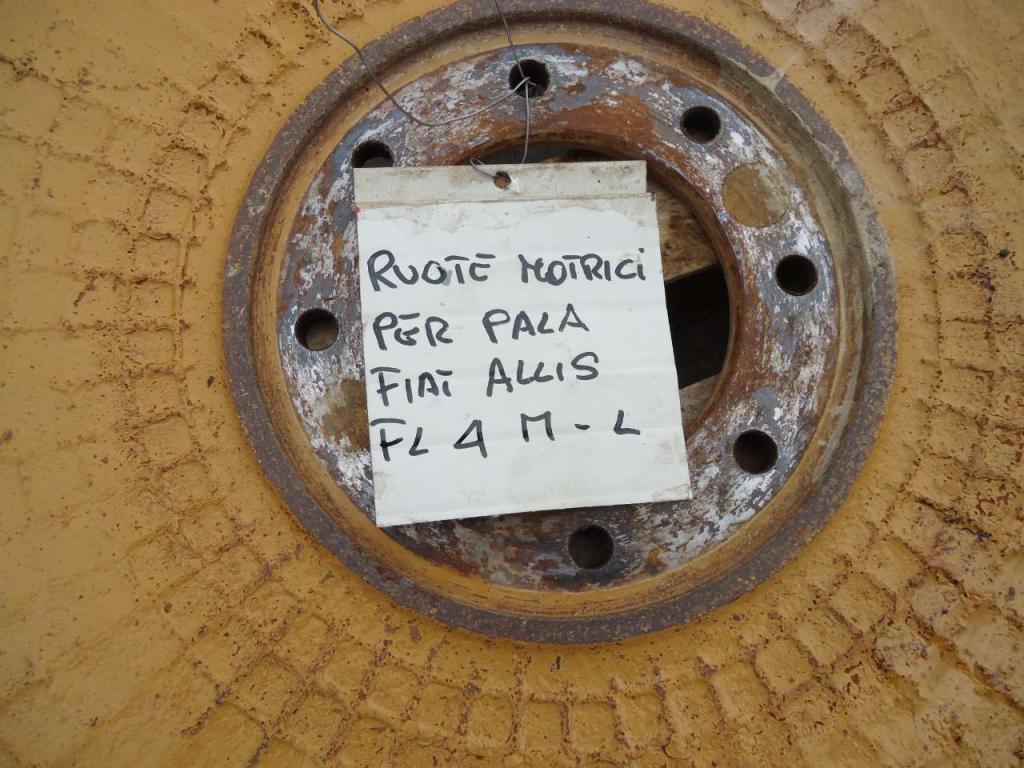 RUOTE MOTRICI
PER PALA
FIAT ALLIS
FL 4 M - L